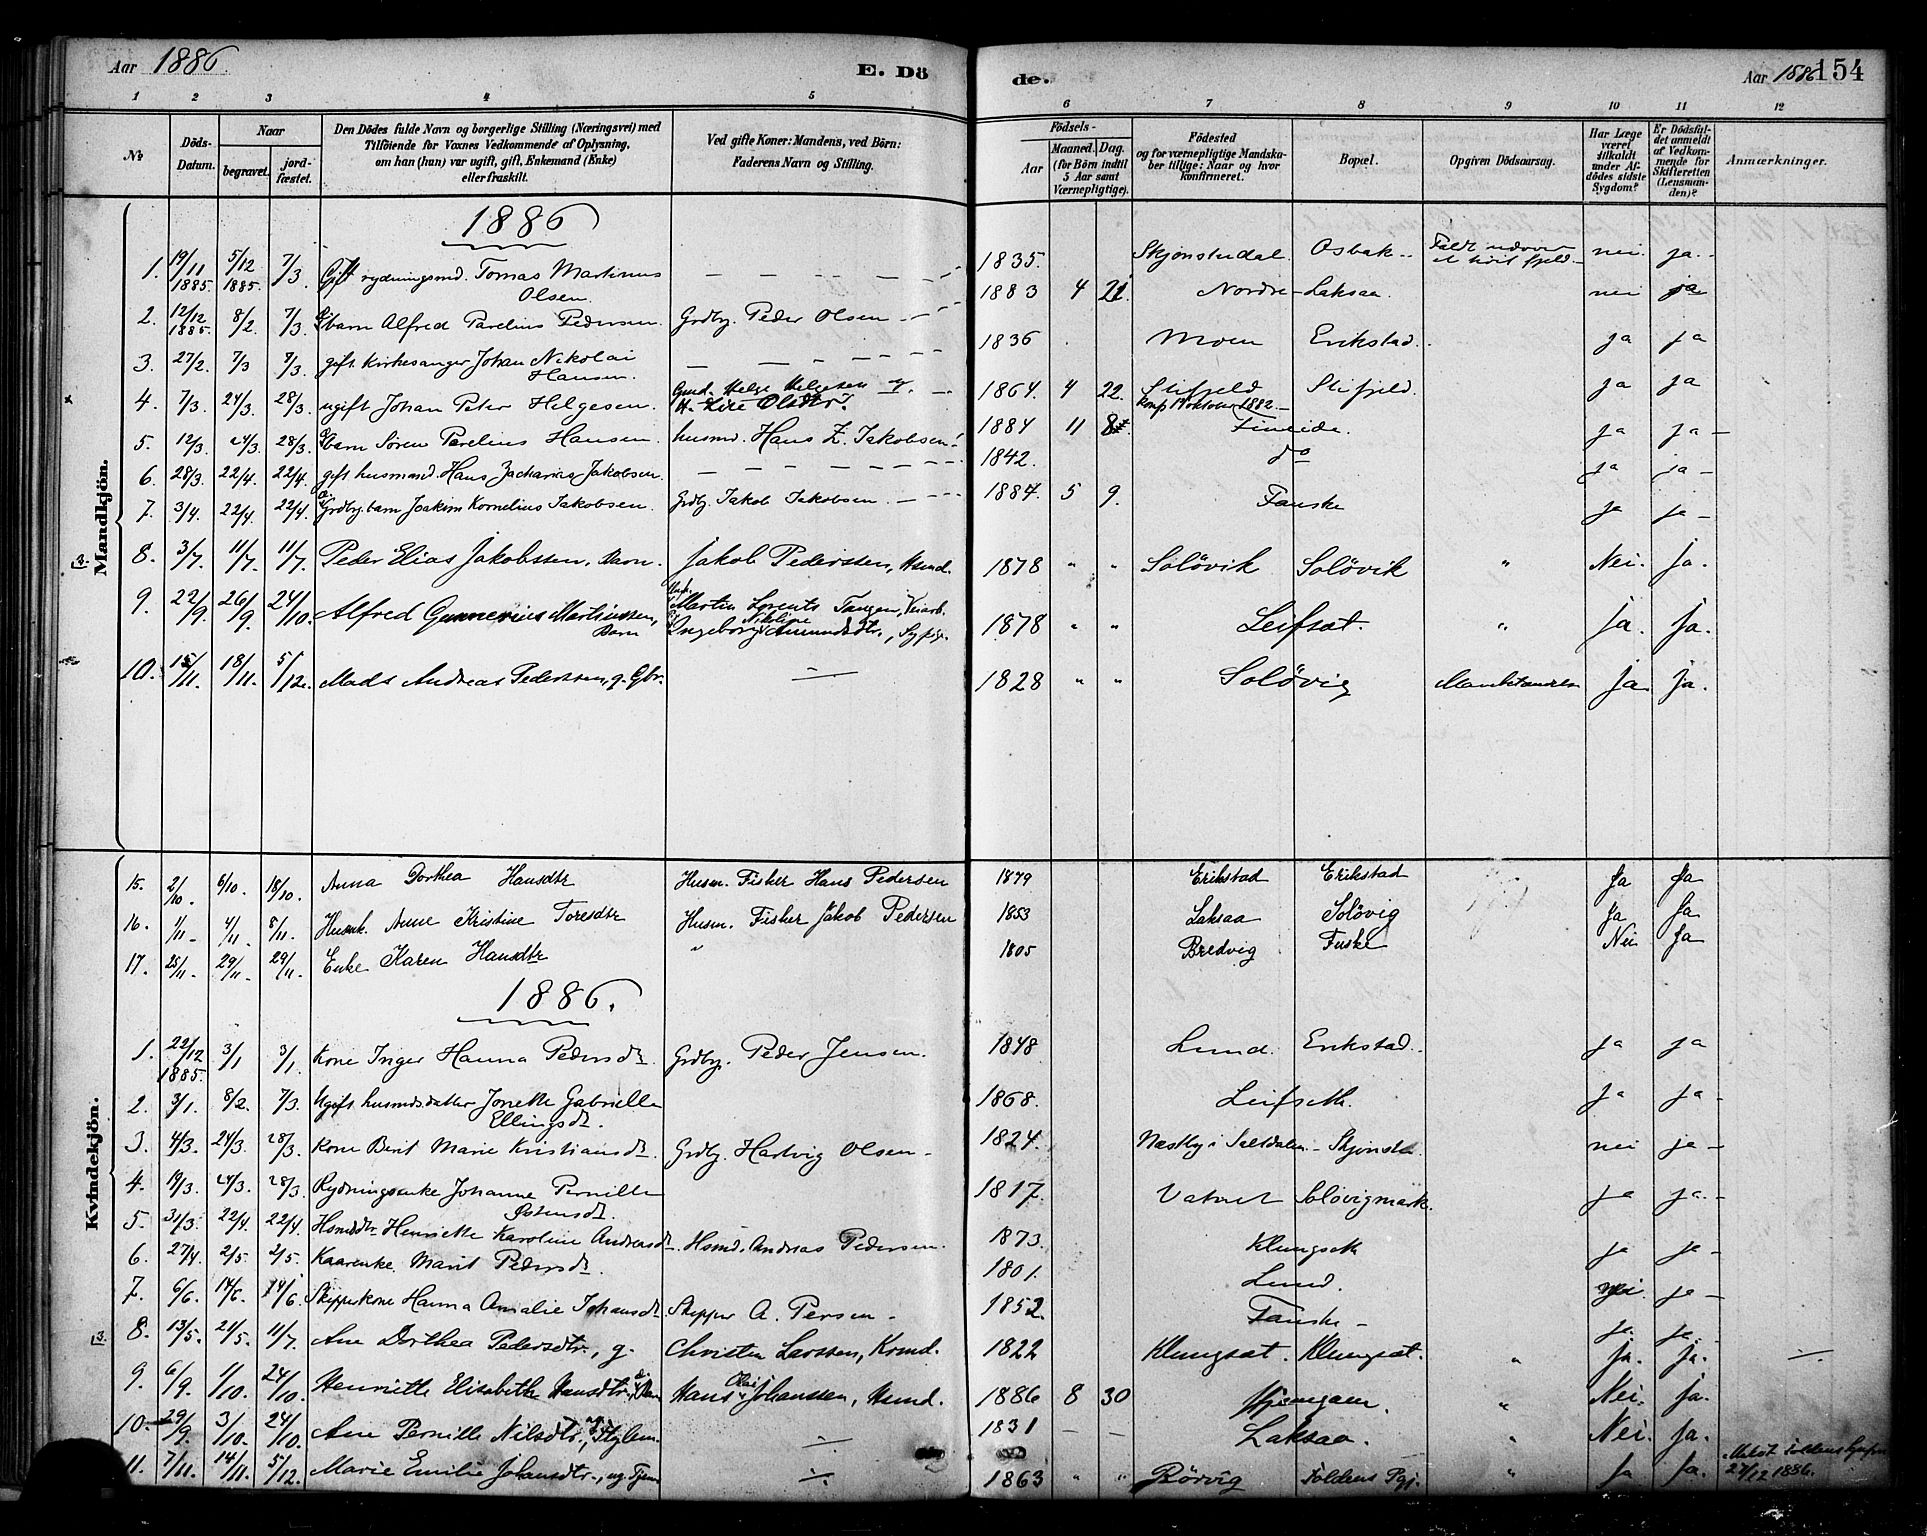 Aar 1886
E. Dö
de.
Aar 1886 154
1 2 3 4 5 6 7 8 9 10 11 12
No
Döds-
Datum.
Naar
begravet.
jord-
fæstet.
Den Dödes fulde Navn og borgerlige Stilling (Næringsvei) med
Tilföiende for Voxnes Vedkommende af Oplysning,
om han (hun) var ugift, gift, Enkemand (Enke)
eller fraskilt.
Ved gifte Koner: Mandens, ved Börn:
Faderens Navn og Stilling.
Födsels-
Aar
Maaned. Dag.
(for Börn indtil
5 Aar samt
Værnepligtige).
Födested
og for værnepligtige Mandska-
ber tillige: Naar og hvor
konfirmeret.
Bopæl.
Opgiven Dödsaarsag.
Har Læge
været
tilkaldt
under Af-
dödes sidste
Sygdom?
Er Dödsfal-
det anmeldt
af Vedkom-
mende for
Skifteretten
(Lensman-
den)?
Anmærkninger.
Mandkjön.
1886
1. 19/11 1885. 5/12 1885. 7/3. Gift rydningsmd. Tomas Martinus — — — 1835. Skjonstudal. Osbak Faldt udover nei. ja.
Olsen. et höit fjeld
2. 12/12 1885. 8/2. 7/3. barn Alfred Parelius Pedersen. Grdbg. Peder Olsen 1883 4 21. Nordre Laksaa. nei ja
3. 27/2. 7/3 7/3. gift Kirkesanger Johan Nikolai — — — 1836 Moen Erikstad. ja ja
Hansen.
4. 7/3. 24/3. 28/3. ugift Johan Peter Helgesen. Helge Helgesen 1864. 4 22. Stifjeld Stifjeld. ja ja
Olsdtr. Konf. oktober 1882.
5. 12/3. 24/3. 28/3. barn Sören Parelius Hansen. husmd. Hans Z. Jakobsen 1884 11 8 Fineide. ja ja
6. 28/3. 22/4. 22/4. gift husmand. Hans Zacharias Jakobsen. — — — 1842. do ja ja
7. 3/4. 22/4. 22/4. Grdbg. barn Joakim Kornelius Jakobsen. Grdbg. Jakob Jakobsen. 1884. 5 9. Fauske ja ja
8. 3/7. 11/7. 11/7. Peder Elias Jakobssen, Barn. Jakob Pederssen, Husmd. 1878 " " Solövik Solövik " Nei. Ja.
9. 22/9. 26/9. 24/10. Alfred Gunnerius Martinssen, Martin Lorents Tangen, 1878 " " Leifsat. " Ja. Ja.
Barn Ingeborg Nikoline Amundsdtr.,
10. 15/11. 18/11. 5/12. Mads Andreas Pederssen, g. Gbr. — 1828 " " Solövig Ja. Ja.
Kvindekjön.
15. 2/10 6/10. 18/10. Anna Dorthea Hansdtr Husm. Fisker Hans Pedersen 1879 Erikstad Erikstad Ja Ja
16. 1/11 4/11. 8/11. Husmk. Anne Kristine Toresdtr Husm. Fisker Jakob Pedersen 1853 Laksaa Solövig Ja Ja
17. 25/11. 29/11 29/11. Enke Karen Hansdtr " 1805 Bredvig Fuske Nei Ja
1886.
1. 22/12 1885. 3/1 3/1. Kone Inger Hanna Pedersdt. Grdbg. Peder Jensen. 1848 Lund. Erikstad. ja ja
2. 3/1. 8/2. 7/3. Ugift husmdsdatter Jonette Gabrielle 1868. Leifseth. ja ja
Ellingsdt.
3. 4/3. 24/3. 28/3. Kone Berit Marie Kristiansdt. Grdbg. Hartvig Olsen 1824. Næstby i Saltdalen. Skjonsta. nei ja
4. 19/3. 24/3. 28/3. Rydningsenke Johanne Pernille 1817. Vatnet Solövigmark. ja ja.
5. 31/3. 22/4. 22/4. Hsmdsdtr Henriette Karoline Andreasdt. Hsmd. Andreas Pedersen. 1873. Klungseth ja ja
6. 27/4. 2/5. 2/5. Kaarenke Marit Pedersdt. 1801. Lund. nei. ja
7. 6/6. 14/6. 14/6. Skipperkone Hanna Amalie Johansdt. Skipper A. Persen 1852. Fauske ja. ja.
8. 13/5. 21/5. 11/7. Ane Dorthea Pedersdtr., g. Christen Larssen, Kaarmd. 1822 Klungsat. Klungsat. " Ja. Ja. —
9. 6/9. 1/10. 24/10. Henriette Elisabeth Hansdtr. Barn Hans Olai Johanssen, Husmd. 1886 8 30 " Nei. Ja.
10. 29/9. 3/10. 24/10. Ane Pernille Nilsdtr., — 1831 — — Laksaa. " Nei. Ja.
11. 7/11. 14/11. 5/12. Marie Emilie Johansdtr., ug. Tjen. — 1863 " " Börvig Foldens Pgj. " Ja Ja. Foldens
27/12 1886.